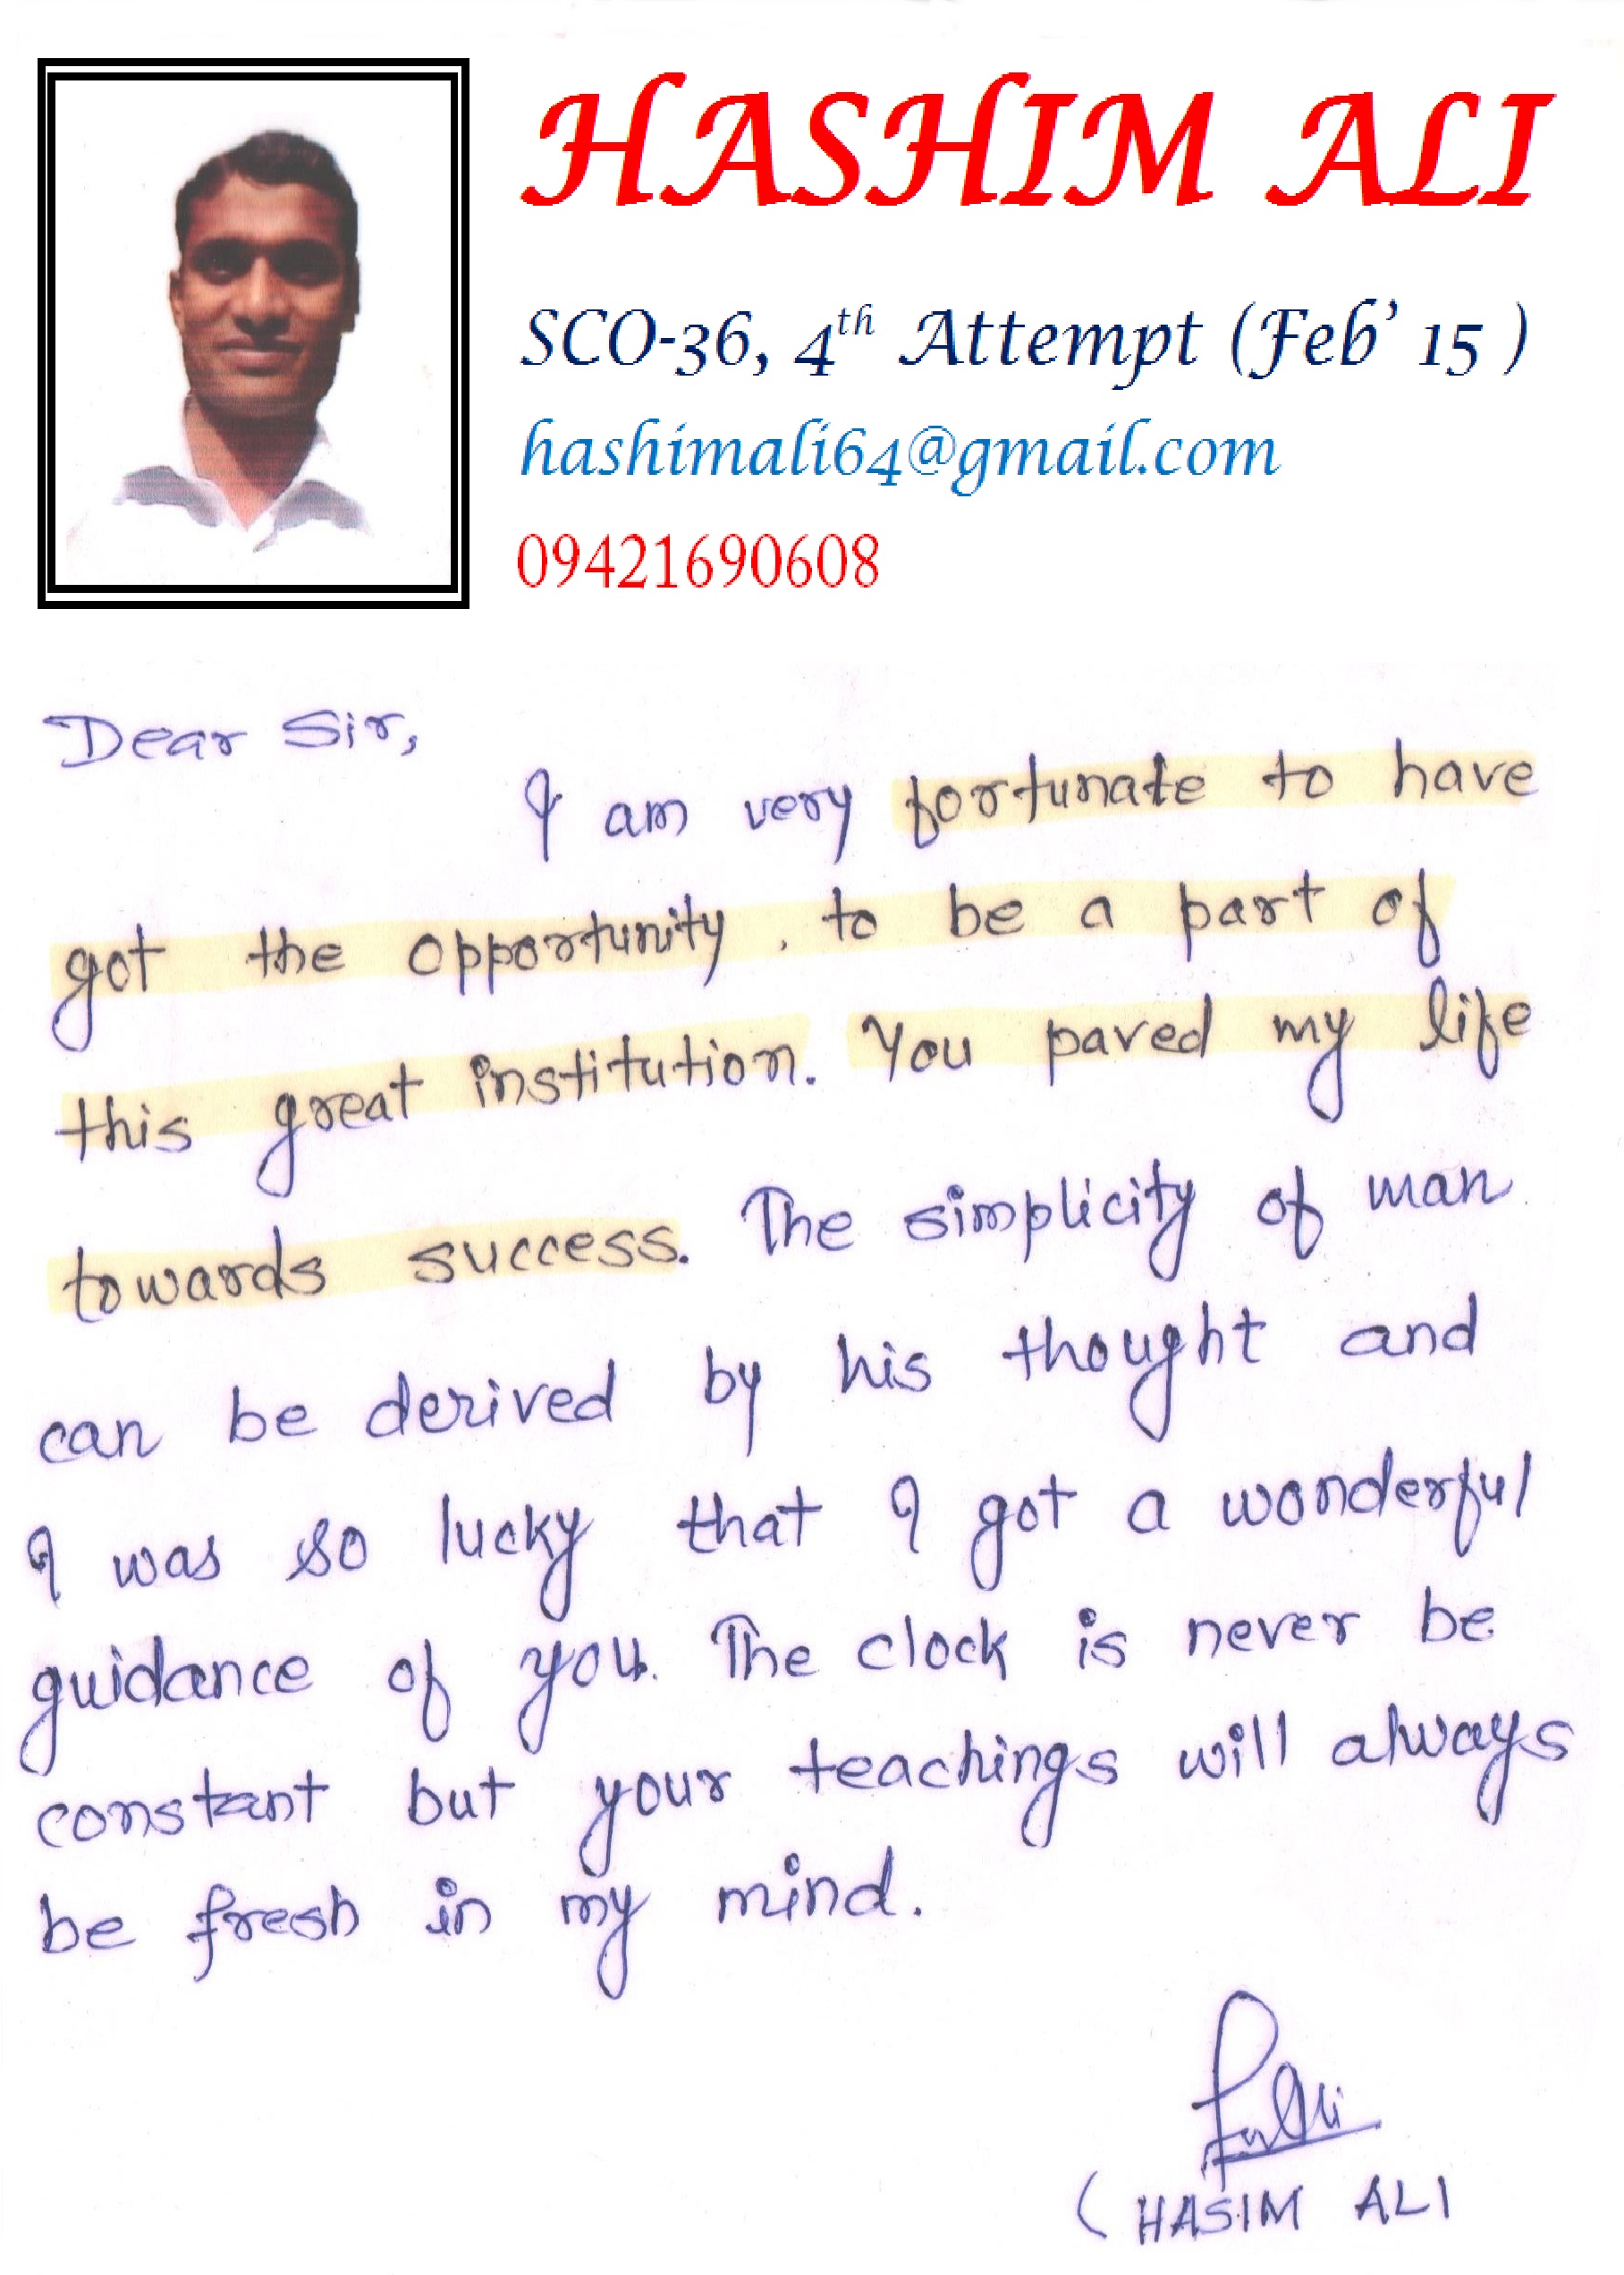 HASHIM ALI
SCO-36, 4th Attempt (Feb' 15 )
hashimali64@gmail.com
09421690608
Dear Sir,
I am very fortunate to have
got the opportunity, to be a part of
this great institution. You paved my life
towards success. The simplicity of man
can be derived by his thought and
I was so lucky that I got a wonderful
guidance of you. The clock is never be
constant but your teachings will always
be fresh in my mind.
( HASIM ALI